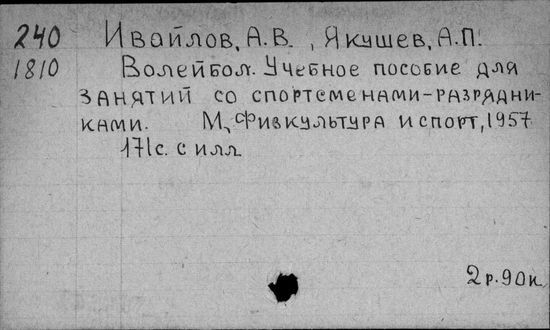 240 Ивайлов, А.В., Якушев, А.П.
1810 Волейбол. Учебное пособие для
занятий со спортсменами-разрядни-
ками. М., Физкультура и спорт, 1957
171с. с илл.
2р.90к